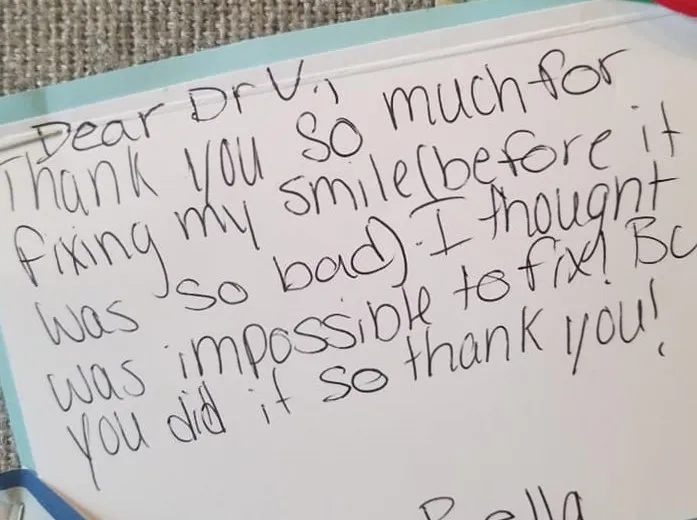 Dear Dr V.,
Thank you so much for
fixing my smile(before it
was so bad). I thought
was impossible to fix! 
you did it so thank you!
Bella